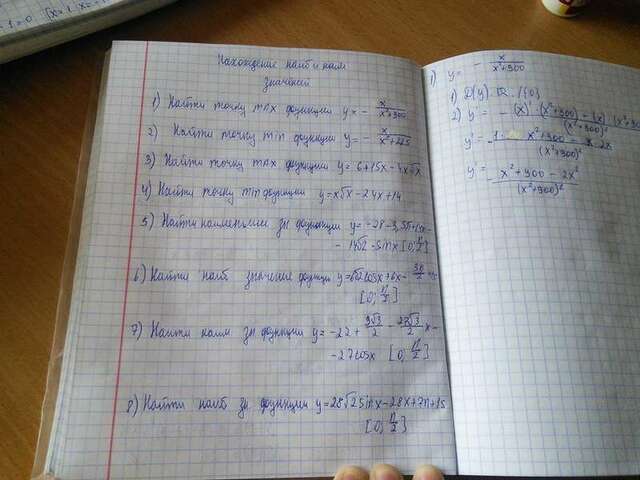 Нахождение наиб и наим
значений
1) Найти точку max функции y = - x/(x²+900)
2) Найти точку min функции y = - x/(x²+225)
3) Найти точку max функции y = 6+15x-4x√x
4) Найти точку min функции y = x√x-24x+14
5) Найти наименьшее зн функции y=
- 14√2 sinx [0; π/2]
6) Найти наиб значение функции
[0; π/2]
7) Найти наим зн функции y= -22+
- 27cosx [0; π/2]
8) Найти наиб зн функции y=28√2sinx-28x+7π+15
[0; π/2]
1) y = - x/(x²+900)
1) D(y)
2) y' = - (x)'·(x²+900)-(x)·(x²+900)
(x²+900)²
y' = x²+900 - x·2x
(x²+900)²
y' = - x²+900-2x²
(x²+900)²